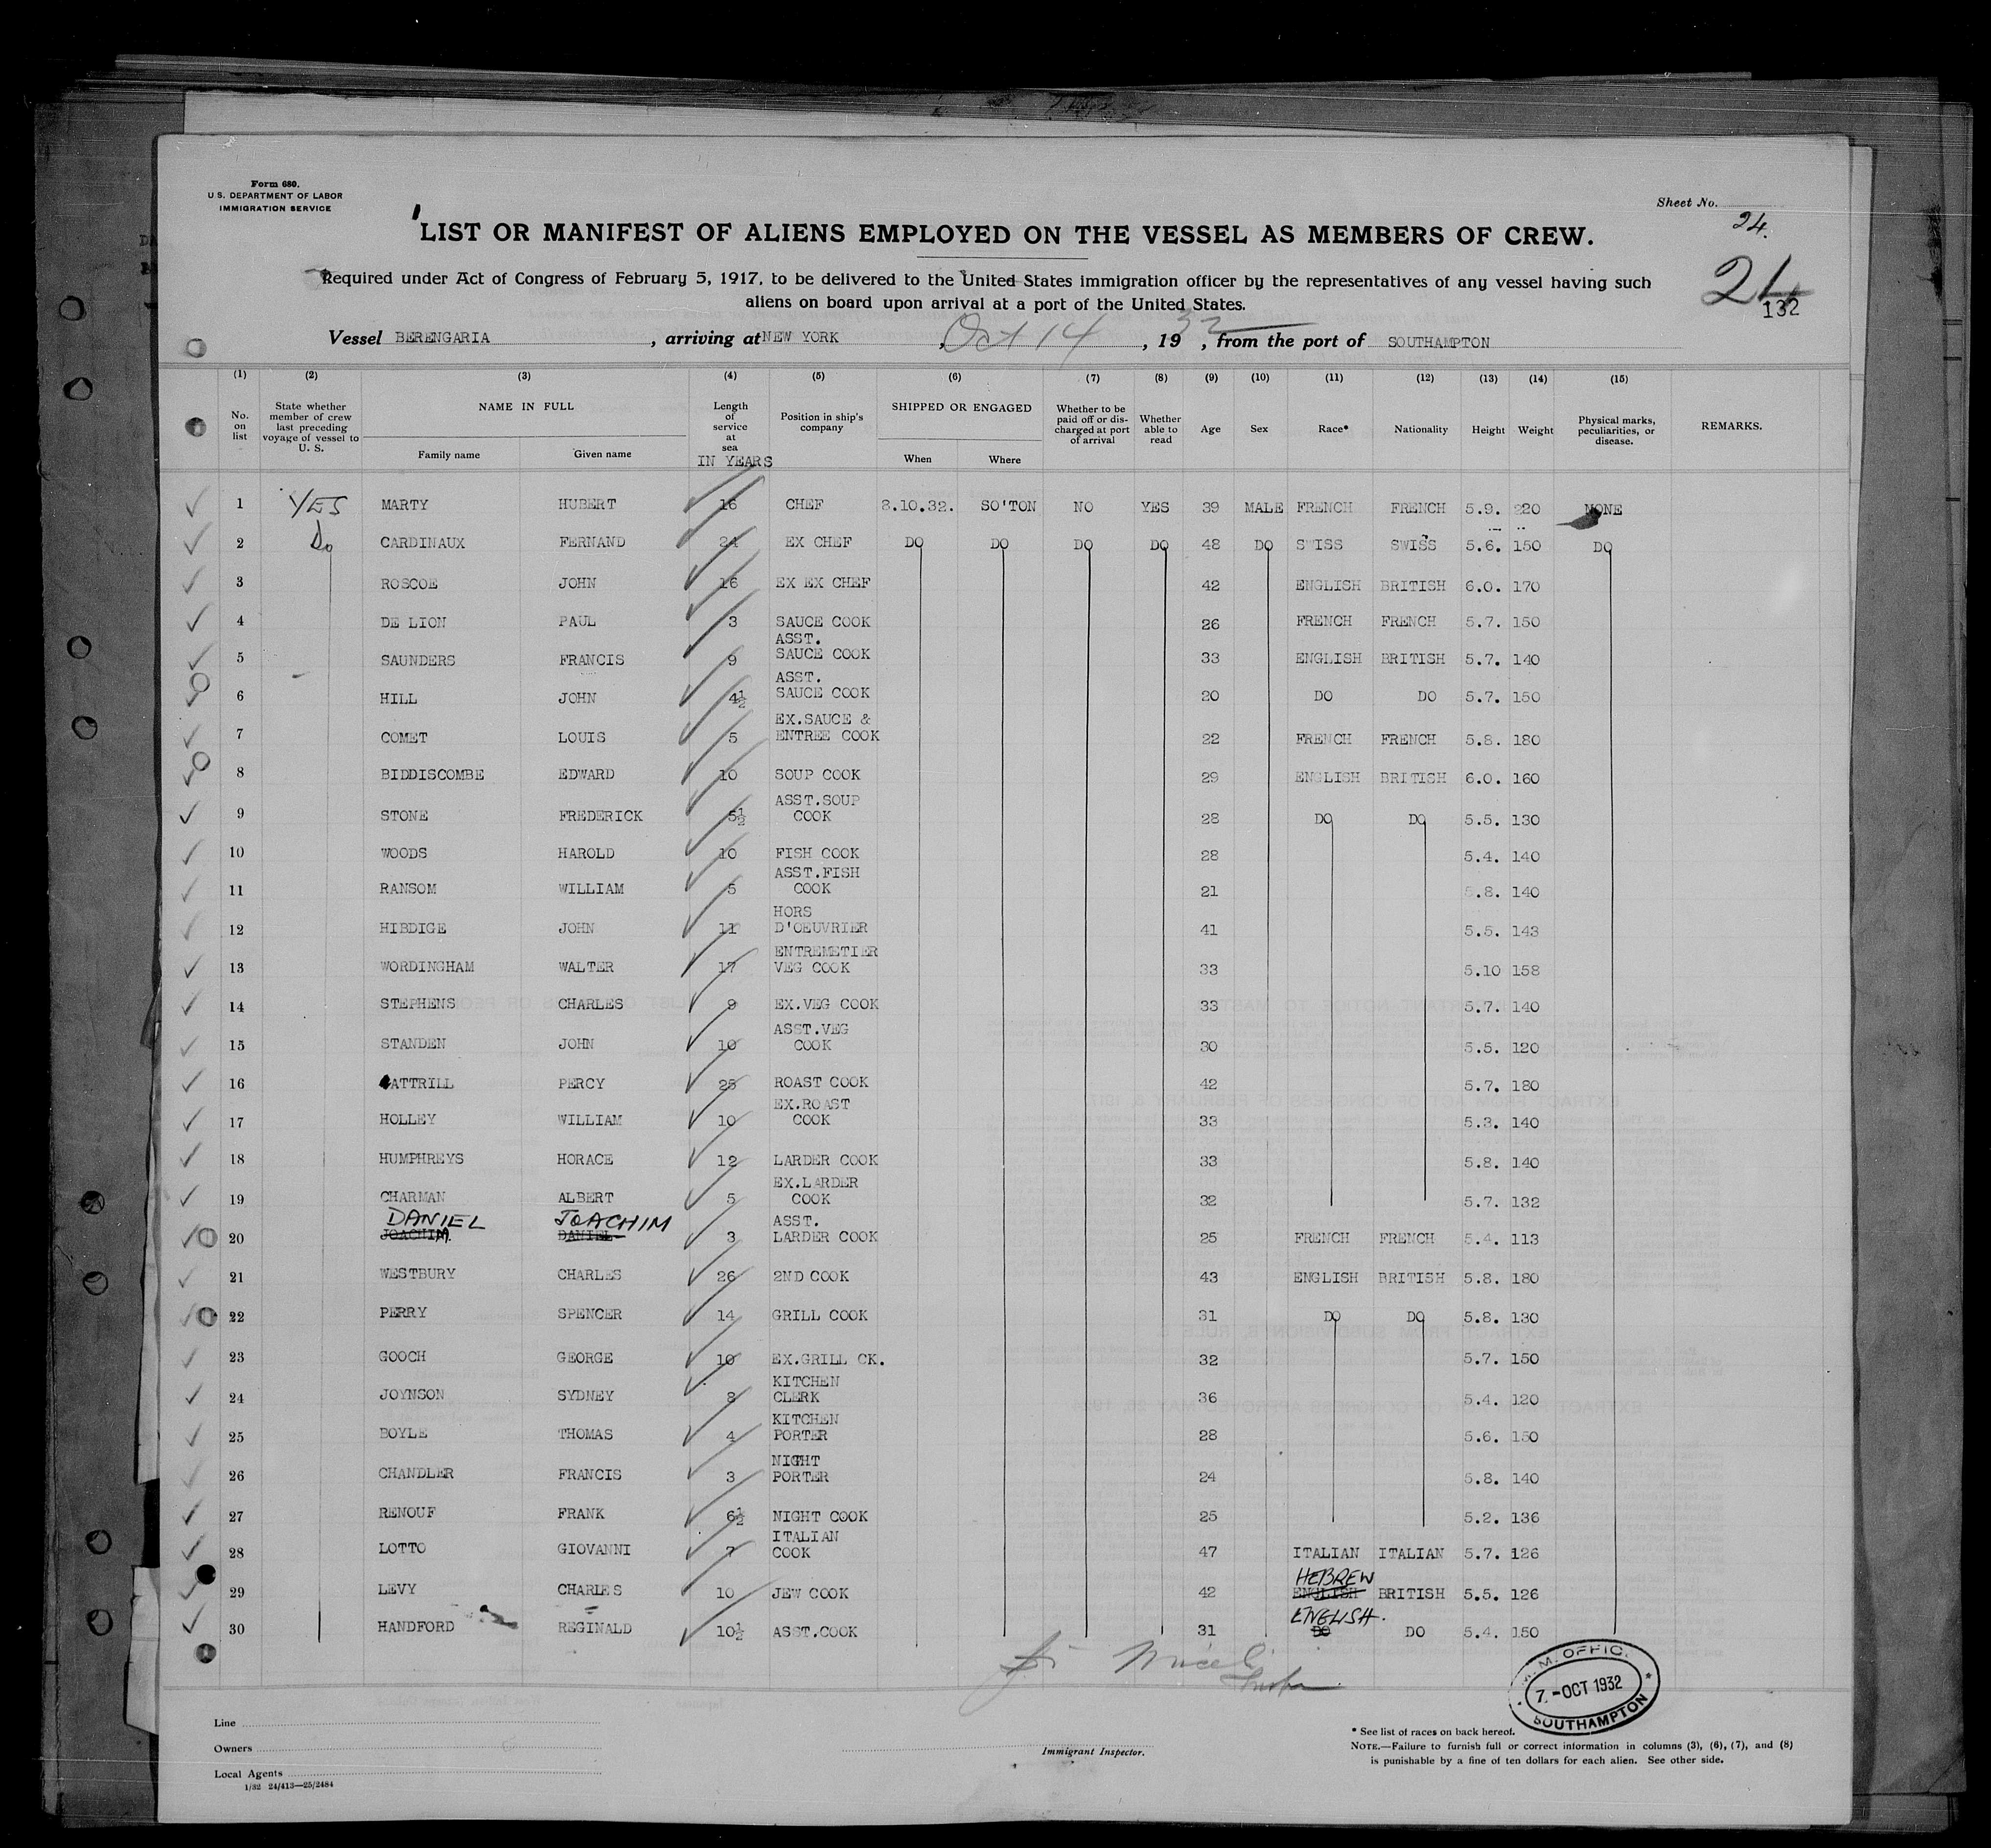 Form 680.
U.S. DEPARTMENT OF LABOR
IMMIGRATION SERVICE
Sheet No. 24.
LIST OR MANIFEST OF ALIENS EMPLOYED ON THE VESSEL AS MEMBERS OF CREW.
Required under Act of Congress of February 5, 1917, to be delivered to the United States immigration officer by the representatives of any vessel having such
aliens on board upon arrival at a port of the United States.
24
132
Vessel BERENGARIA, arriving at NEW YORK, Oct 14, 1932, from the port of SOUTHAMPTON
(1) (2) (3) (4) (5) (6) (7) (8) (9) (10) (11) (12) (13) (14) (15)
No. on list State whether member of crew last preceding voyage of vessel to U. S. NAME IN FULL Family name Given name Length of service at sea IN YEARS Position in ship's company SHIPPED OR ENGAGED When Where Whether to be paid off or discharged at port of arrival Whether able to read Age Sex Race* Nationality Height Weight Physical marks, peculiarities, or disease. REMARKS.
1 YES MARTY HUBERT 16 CHEF 8.10.32. SO'TON NO YES 39 MALE FRENCH FRENCH 5.9. 220 NONE
2 Do CARDINAUX FERNAND 24 EX CHEF DO DO DO DO 48 DO SWISS SWISS 5.6. 150 DO
3 ROSCOE JOHN 16 EX EX CHEF 42 ENGLISH BRITISH 6.0. 170
4 DE LION PAUL 3 SAUCE COOK 26 FRENCH FRENCH 5.7. 150
5 SAUNDERS FRANCIS 9 ASST. SAUCE COOK 33 ENGLISH BRITISH 5.7. 140
6 HILL JOHN 4½ ASST. SAUCE COOK 20 DO DO 5.7. 150
7 COMET LOUIS 5 EX.SAUCE & ENTREE COOK 22 FRENCH FRENCH 5.8. 180
8 BIDDISCOMBE EDWARD 10 SOUP COOK 29 ENGLISH BRITISH 6.0. 160
9 STONE FREDERICK 5½ ASST.SOUP COOK 28 DO DO 5.5. 130
10 WOODS HAROLD 10 FISH COOK 28 5.4. 140
11 RANSOM WILLIAM 5 ASST.FISH COOK 21 5.8. 140
12 HIBDIGE JOHN 11 HORS D'OEUVRIER 41 5.5. 143
13 WORDINGHAM WALTER 17 ENTREMETIER VEG COOK 33 5.10 158
14 STEPHENS CHARLES 9 EX.VEG COOK 33 5.7. 140
15 STANDEN JOHN 10 ASST.VEG COOK 30 5.5. 120
16 ATTRILL PERCY 25 ROAST COOK 42 5.7. 180
17 HOLLEY WILLIAM 10 EX.ROAST COOK 33 5.3. 140
18 HUMPHREYS HORACE 12 LARDER COOK 33 5.8. 140
19 CHARMAN ALBERT 5 EX.LARDER COOK 32 5.7. 132
DANIEL JOACHIM
20 JOACHIM DANIEL 3 ASST. LARDER COOK 25 FRENCH FRENCH 5.4. 113
21 WESTBURY CHARLES 26 2ND COOK 43 ENGLISH BRITISH 5.8. 180
22 PERRY SPENCER 14 GRILL COOK 31 DO DO 5.8. 130
23 GOOCH GEORGE 10 EX.GRILL CK. 32 5.7. 150
24 JOYNSON SYDNEY 8 KITCHEN CLERK 36 5.4. 120
25 BOYLE THOMAS 4 KITCHEN PORTER 28 5.6. 150
26 CHANDLER FRANCIS 3 NIGHT PORTER 24 5.8. 140
27 RENOUF FRANK 6½ NIGHT COOK 25 5.2. 136
28 LOTTO GIOVANNI 7 ITALIAN COOK 47 ITALIAN ITALIAN 5.7. 126
HEBREW
29 LEVY CHARLES 10 JEW COOK 42 ENGLISH BRITISH 5.5. 126
ENGLISH.
30 HANDFORD REGINALD 10½ ASST.COOK 31 DO DO 5.4. 150
M. OFFIC
7.-OCT 1932
SOUTHAMPTON
Line
Owners
Local Agents
1/32 24/413—25/2484
Immigrant Inspector.
* See list of races on back hereof.
NOTE.—Failure to furnish full or correct information in columns (3), (6), (7), and (8)
is punishable by a fine of ten dollars for each alien. See other side.